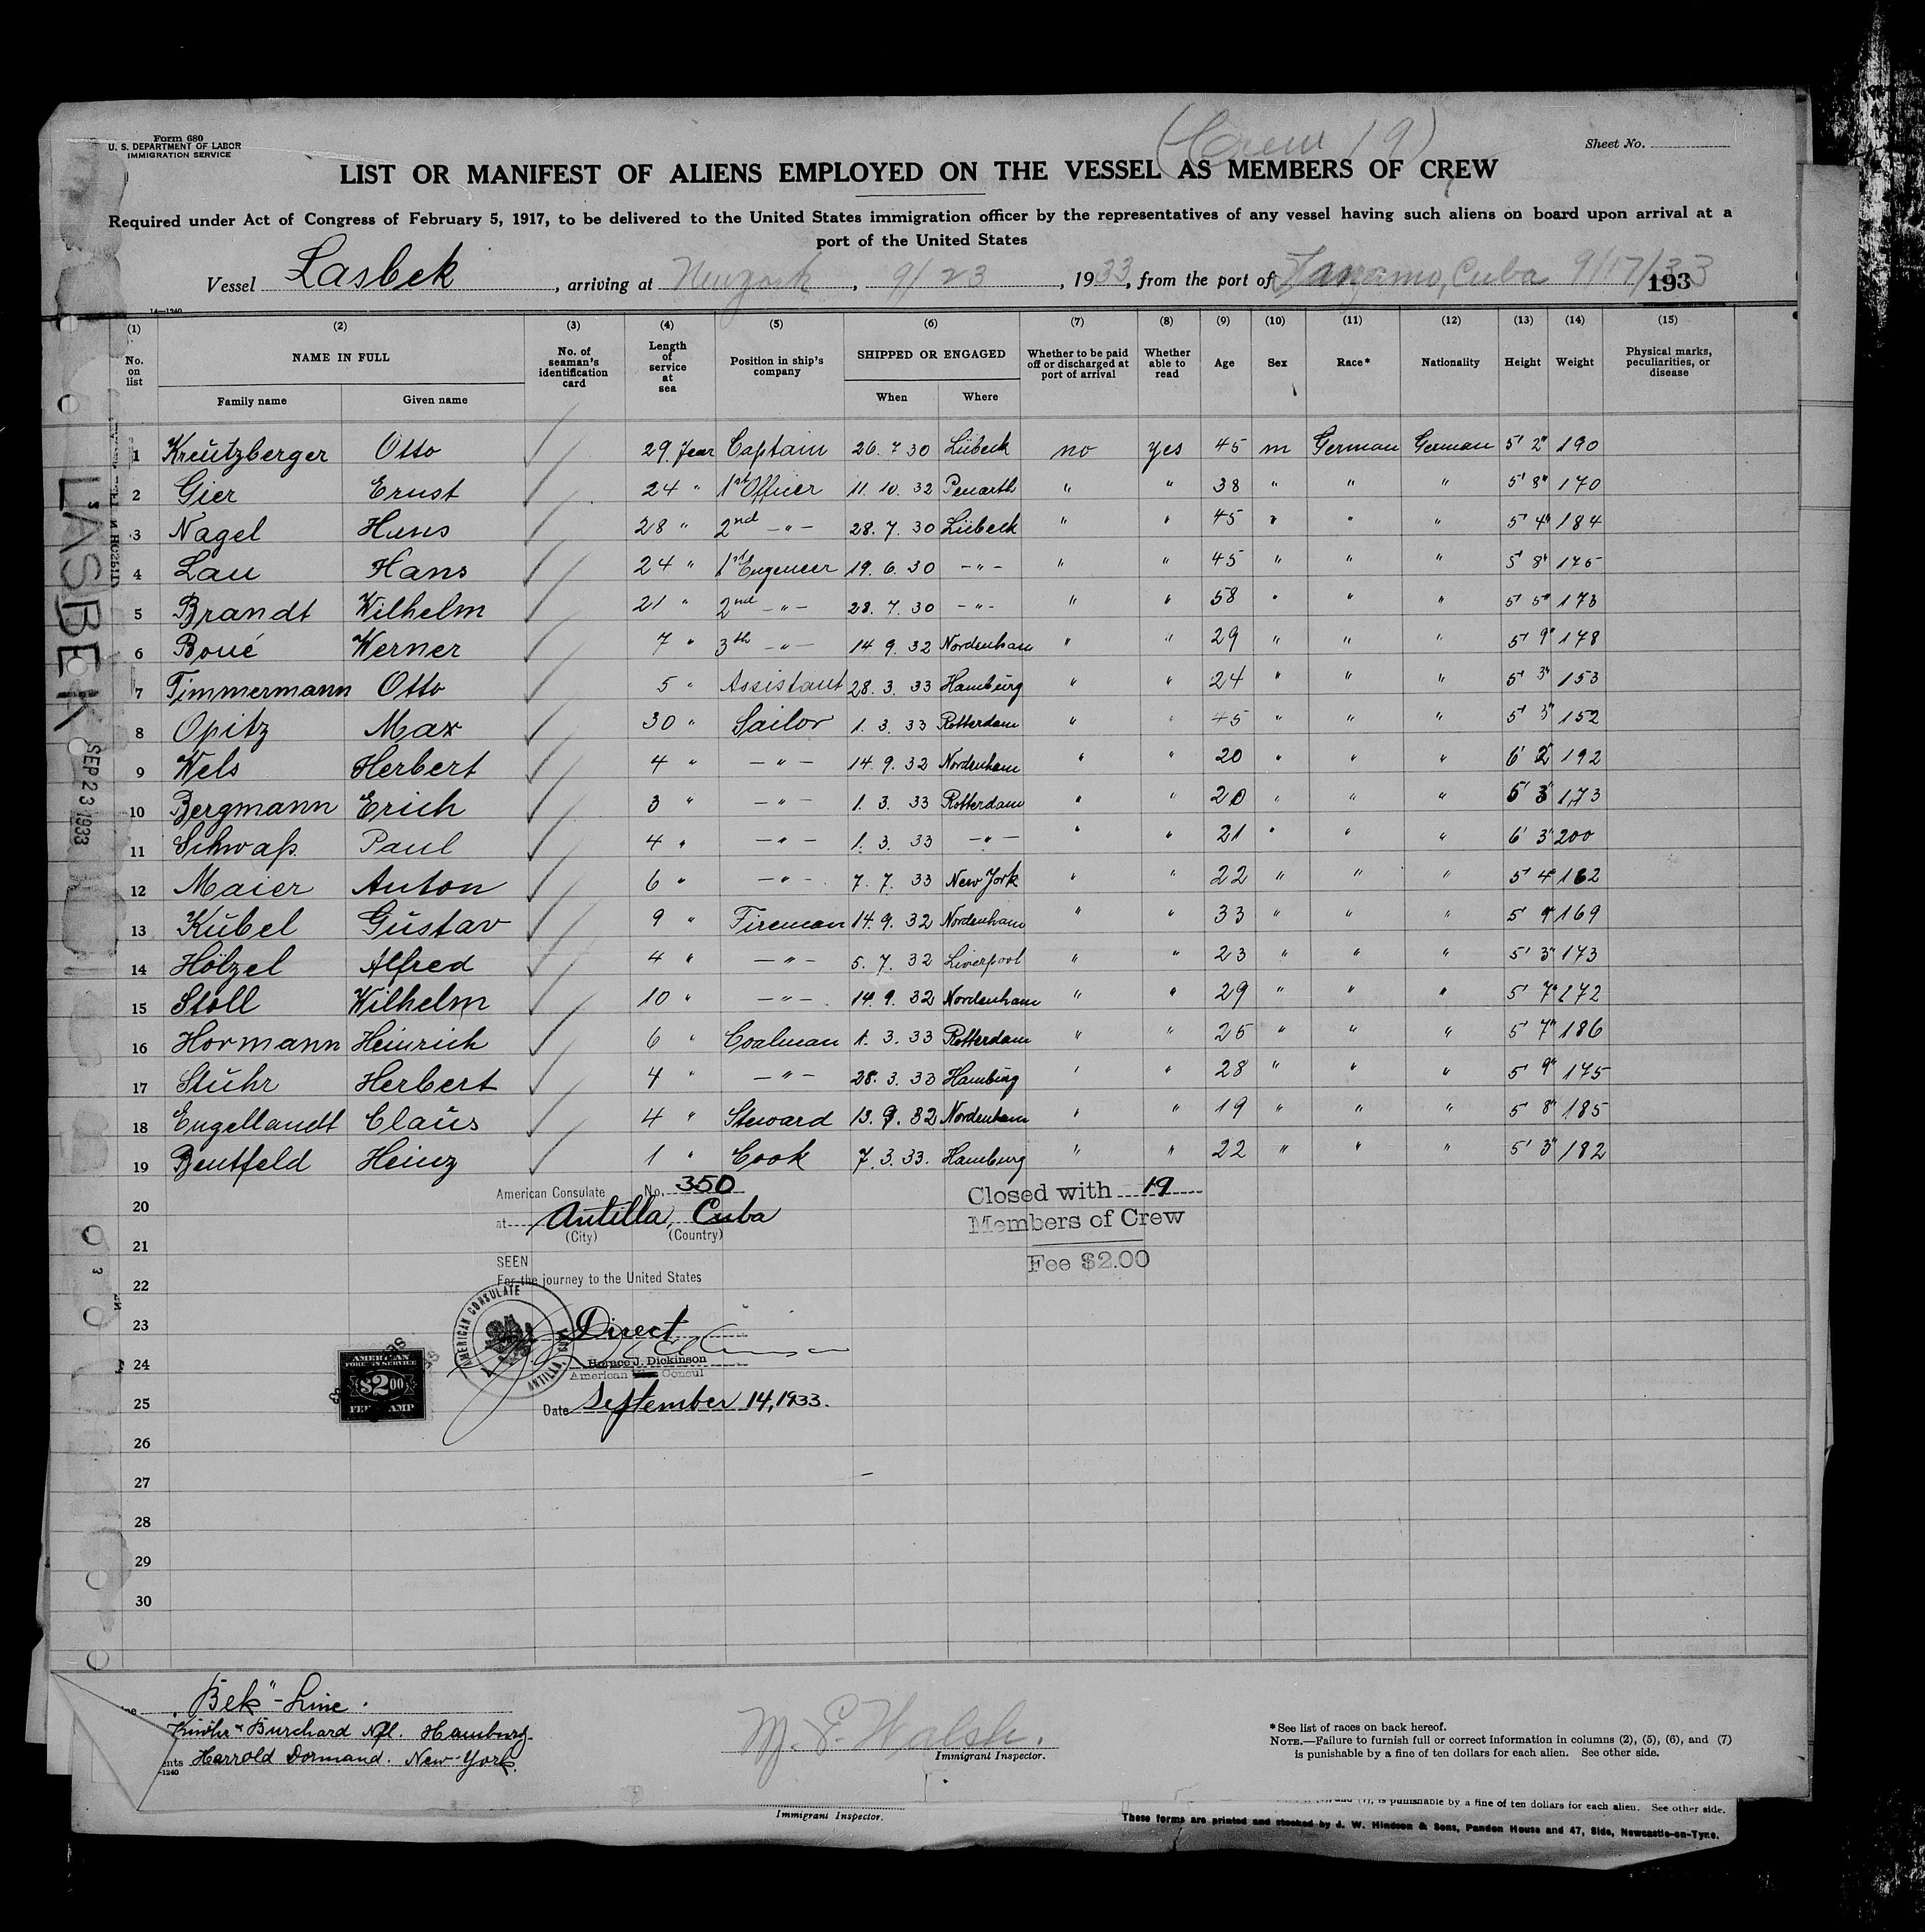 (Crew 19)
Form 680
U. S. DEPARTMENT OF LABOR
IMMIGRATION SERVICE
Sheet No.
LIST OR MANIFEST OF ALIENS EMPLOYED ON THE VESSEL AS MEMBERS OF CREW
Required under Act of Congress of February 5, 1917, to be delivered to the United States immigration officer by the representatives of any vessel having such aliens on board upon arrival at a
port of the United States
Vessel Lasbek, arriving at New york, 9/23, 1933, from the port of Tanamo, Cuba 9/17/33 193
14—1240
(1) (2) (3) (4) (5) (6) (7) (8) (9) (10) (11) (12) (13) (14) (15)
No. on list NAME IN FULL No. of seaman's identification card Length of service at sea Position in ship's company SHIPPED OR ENGAGED Whether to be paid off or discharged at port of arrival Whether able to read Age Sex Race* Nationality Height Weight Physical marks, peculiarities, or disease
Family name Given name When Where
1 Kreutzberger Otto 29. Jear Captain 26. 7 30 Lübeck no yes 45 m German German 5' 2" 190
2 Gier Ernst 24 " 1st Officer 11. 10. 32 Penarth " " 38 " " " 5' 8" 170
3 Nagel Hans 28 " 2nd -"- 28. 7. 30 Lübeck " " 45 " " " 5' 4" 184
4 Lau Hans 24 " 1st Engeneer 19. 6. 30 -"- " " 45 " " " 5' 8" 175
5 Brandt Wilhelm 21 " 2nd -"- 28. 7. 30 -"- " " 58 " " " 5' 5" 173
6 Boué Werner 7 " 3th -"- 14 9. 32 Nordenham " " 29 " " " 5' 9" 178
7 Timmermann Otto 5 " Assistant 28. 3. 33 Hamburg " " 24 " " " 5' 3" 153
8 Opitz Max 30 " Sailor 1. 3. 33 Rotterdam " " 45 " " " 5' 3" 152
9 Wels Herbert 4 " -"- 14. 9. 32 Nordenham " " 20 " " " 6' 2" 192
10 Bergmann Erich 3 " -"- 1. 3. 33 Rotterdam " " 20 " " " 5' 3" 173
11 Schwaß Paul 4 " -"- 1. 3. 33 -"- " " 21 " " " 6' 3" 200
12 Maier Anton 6 " -"- 7. 7. 33 New York " " 22 " " " 5' 4" 162
13 Kubel Gustav 9 " Fireman 14. 9. 32 Nordenham " " 33 " " " 5' 169
14 Hölzel Alfred 4 " -"- 5. 7. 32 Liverpool " " 23 " " " 5' 3" 173
15 Stoll Wilhelm 10 " -"- 14. 9. 32 Nordenham " " 29 " " " 5' 7" 172
16 Hormann Heinrich 6 " Coalman 1. 3. 33 Rotterdam " " 25 " " " 5' 7" 186
17 Stuhr Herbert 4 " -"- 28. 3. 33 Hamburg " " 28 " " " 5' 9" 175
18 Engellandt Claus 4 " Steward 13. 9. 32 Nordenham " " 19 " " " 5 8" 185
19 Bentfeld Heinz 1 " Cook 7. 3. 33. Hamburg " " 22 " " " 5' 3" 182
20
21
22
23
24
25
26
27
28
29
30
American Consulate No. 350
at Antilla, Cuba
(City) (Country)
SEEN
For the journey to the United States
Direct
Horace J. Dickinson
American Consul
Date September 14, 1933.
AMERICAN CONSULATE
ANTILLA, CUBA
AMERICAN
FOREIGN SERVICE
$2.00
FEE STAMP
Closed with 19
Members of Crew
Fee $2.00
LASBEK
SEP 23 1933
"Bek"-Line.
Knöhr & Burchard Nfl. Hamburg.
Harrold Dormand. New-York.
M. E. Walsh.
Immigrant Inspector.
*See list of races on back hereof.
NOTE.—Failure to furnish full or correct information in columns (2), (5), (6), and (7)
is punishable by a fine of ten dollars for each alien. See other side.
Immigrant Inspector.
is punishable by a fine of ten dollars for each alien. See other side.
These forms are printed and stocked by J. W. Hindson & Sons, Pandon House and 47, Side, Newcastle-on-Tyne.